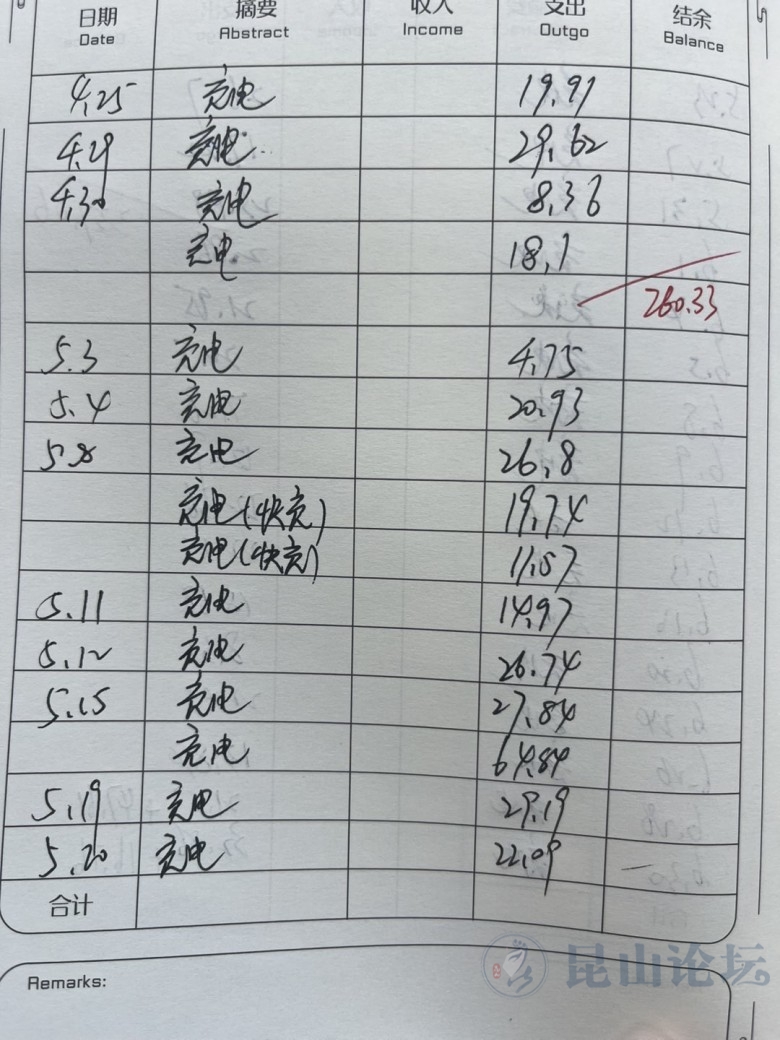 日期 摘要 收入 支出 结余
Date Abstract Income Outgo Balance
4.25 充电 19.91
4.29 充电 29.62
4.30 充电 8.36
充电 18.1
260.33
5.3 充电 4.75
5.4 充电 20.93
5.8 充电 26.8
充电(快充) 19.74
充电(快充) 11.57
5.11 充电 14.97
5.12 充电 26.74
5.15 充电 27.84
充电 64.84
5.19 充电 29.19
5.20 充电 22.09
合计
Remarks:
昆山论坛